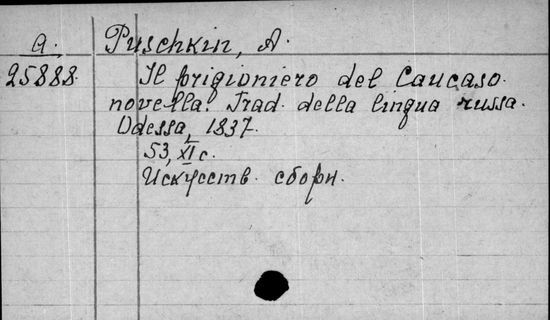 a. Puschkin, A.
25888. Il prigioniero del Caucaso.
novella. Trad. della lingua russa.
Odessa, 1837.
53, XI c.
Искусств. сборн.